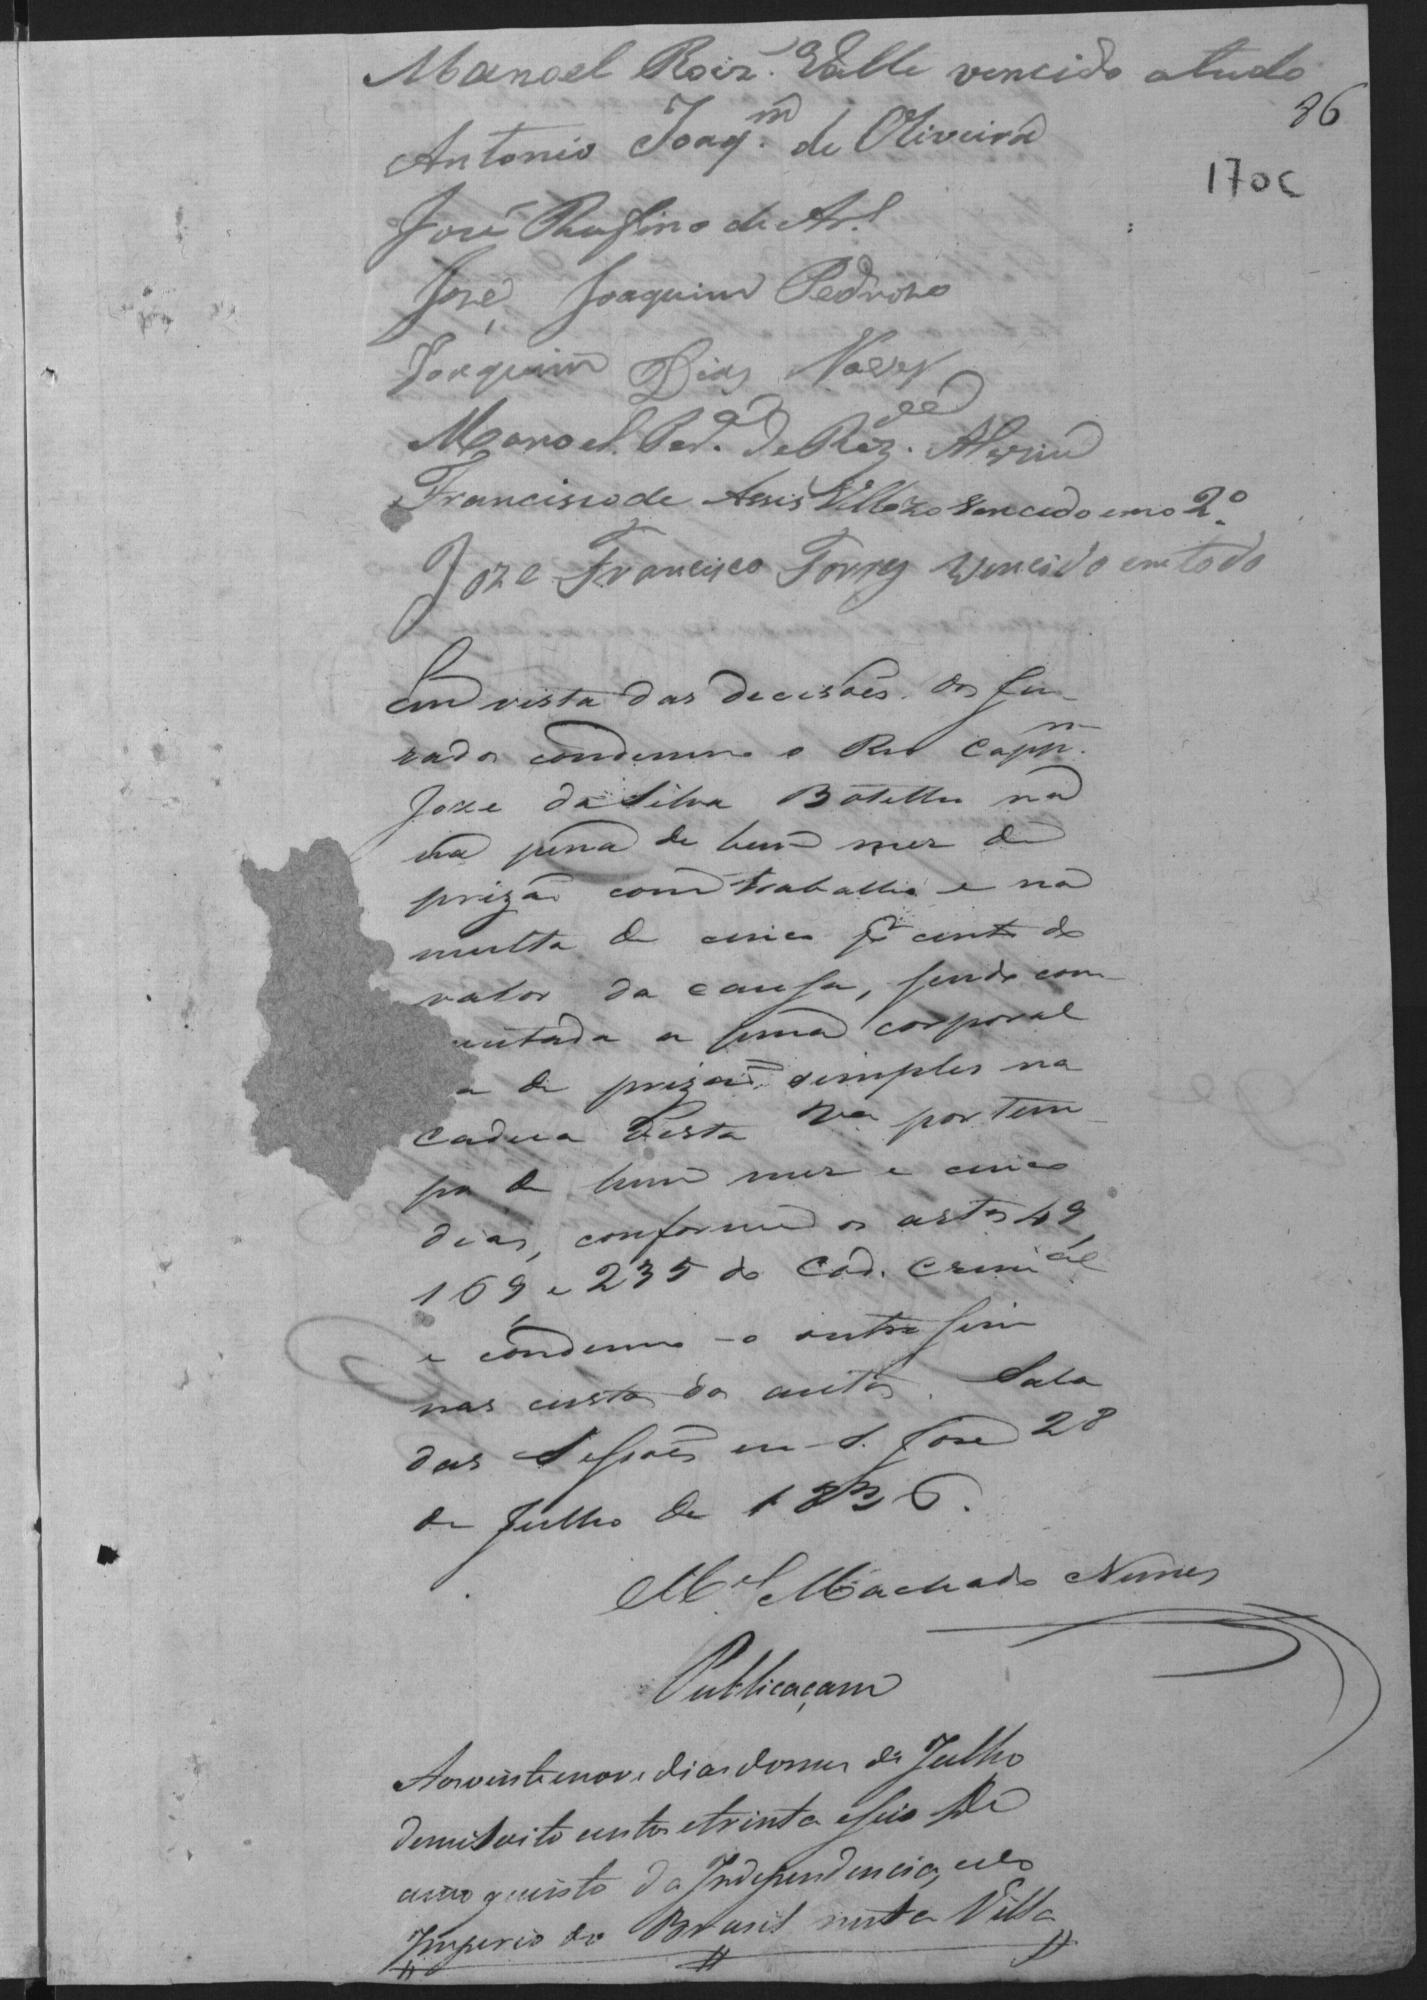 Manoel Roiz. Valle vencido atudo
86
Antonio Joaq.m de Oliveira
170c
José Rufino de Ar.l
José Joaquim Pedrozo
Joaquim Dias Naves
Manoel Per.a de Rez.de
Francisco de Assis Vellozo vencedo em o 2.º
Joze Francisco Torres vencido em todo
Em vista das decisões dos Ju
rados condemno o Reo Capp.m
Joze da Silva Botelho na
na pena de hum mez de
prizão com trabalho e na
multa de cinco por cento do
valor da causa, sendo com
mutada a pena corporal
a de prizão simples na
cadeia desta Va por tem
po de hum mez e cinco
dias, conforme os artos 49
169 e 235 do Cod. Criminal
e condemno-o outro sim
nas custas dos autos. Sala
das Sessões em S. José 28
de Julho de 1836.
M.el Machado Nunes
Publicaçam
Aos vinte enove dias domes de Julho
demil oito centos etrinta eseis De
cimo quinto da Independencia, edo
Imperio do Brasil nesta Villa